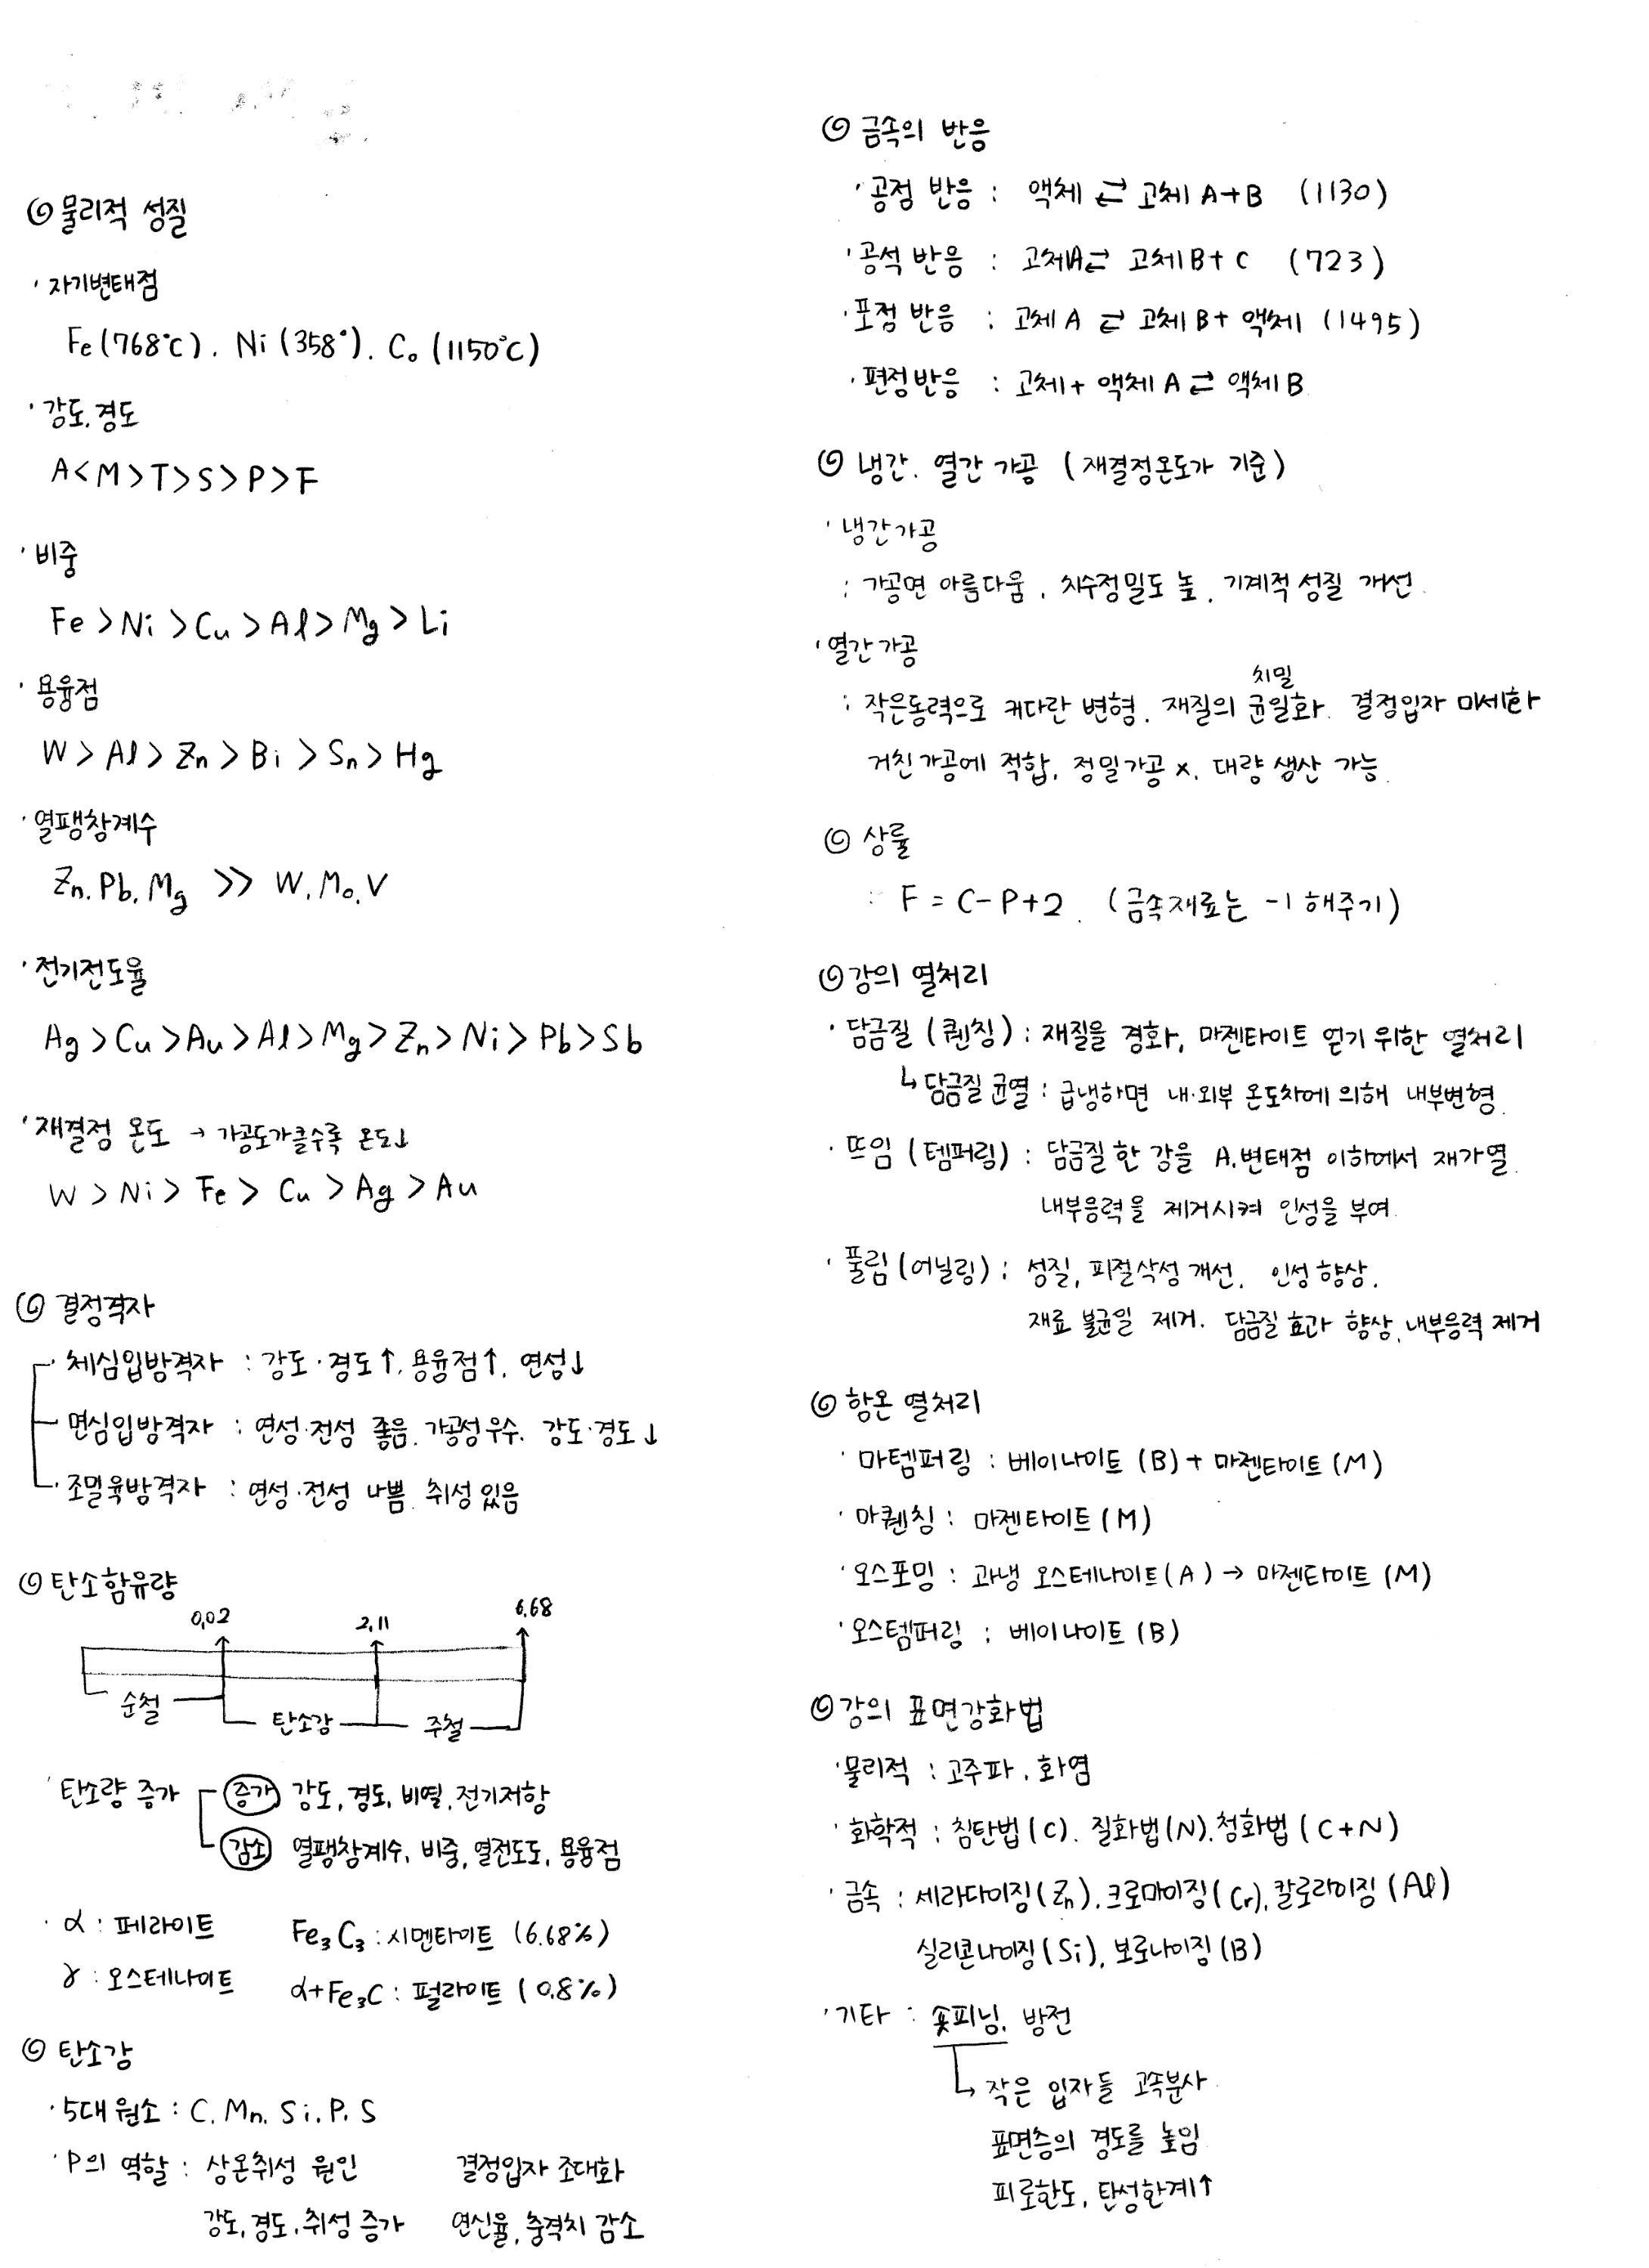 ◎ 물리적 성질
· 자기변태점
Fe(768℃). Ni(358°). Co(1150℃)
· 강도.경도
A<M>T>S>P>F
· 비중
Fe>Ni>Cu>Al>Mg>Li
· 용융점
W>Al>Zn>Bi>Sn>Hg
· 열팽창계수
Zn.Pb.Mg ≫ W.Mo.V
· 전기전도율
Ag>Cu>Au>Al>Mg>Zn>Ni>Pb>Sb
· 재결정 온도 → 가공도가클수록 온도↓
W>Ni>Fe>Cu>Ag>Au
◎ 결정격자
· 체심입방격자 : 강도·경도↑. 용융점↑. 연성↓
· 면심입방격자 : 연성·전성 좋음. 가공성우수. 강도·경도↓
· 조밀육방격자 : 연성·전성 나쁨. 취성있음
◎ 탄소함유량
0.02 2.11 6.68
순철 탄소강 주철
· 탄소량 증가 증가 강도, 경도, 비열, 전기저항
감소 열팽창계수, 비중, 열전도도, 용융점
· α : 페라이트 Fe₃C₃ : 시멘타이트 (6.68%)
γ : 오스테나이트 α+Fe₃C : 펄라이트 (0.8%)
◎ 탄소강
· 5대 원소 : C. Mn. Si. P. S
· P의 역할 : 상온취성 원인 결정입자 조대화
강도, 경도, 취성 증가 연신율, 충격치 감소
◎ 금속의 반응
· 공정 반응 : 액체 ⇄ 고체 A+B (1130)
· 공석 반응 : 고체A⇄ 고체B+C (723)
· 포정 반응 : 고체A ⇄ 고체B+ 액체 (1495)
· 편정반응 : 고체+ 액체A ⇄ 액체B
◎ 냉간. 열간 가공 (재결정온도가 기준)
· 냉간가공
: 가공면 아름다움. 치수정밀도 높. 기계적 성질 개선.
· 열간가공
치밀
: 작은동력으로 커다란 변형. 재질의 균일화. 결정입자 미세화
거친가공에 적합, 정밀가공 x. 대량 생산 가능.
◎ 상률
: F = C-P+2. (금속재료는 -1 해주기)
◎ 강의 열처리
· 담금질 (퀜칭) : 재질을 경화, 마젠타이트 얻기 위한 열처리
↳ 담금질 균열 : 급냉하면 내·외부 온도차에 의해 내부변형.
· 뜨임 (템퍼링) : 담금질 한 강을 A₁변태점 이하에서 재가열.
내부응력을 제거시켜 인성을 부여.
· 풀림(어닐링) : 성질, 피절삭성 개선. 인성 향상.
재료 불균일 제거. 담금질 효과 향상, 내부응력 제거
◎ 항온 열처리
· 마템퍼링 : 베이나이트 (B) + 마젠타이트 (M)
· 마퀜칭 : 마젠타이트 (M)
· 오스포밍 : 과냉 오스테나이트(A) → 마젠타이트 (M)
· 오스템퍼링 : 베이나이트 (B)
◎ 강의 표면강화법
· 물리적 : 고주파. 화염
· 화학적 : 침탄법(C). 질화법(N). 청화법 (C+N)
· 금속 : 세라다이징(Zn), 크로마이징(Cr), 칼로라이징(Al)
실리콘나이징(Si), 보로나이징(B)
· 기타 : 숏피닝. 방전
↳ 작은 입자들 고속분사.
표면층의 경도를 높임
피로한도, 탄성한계↑